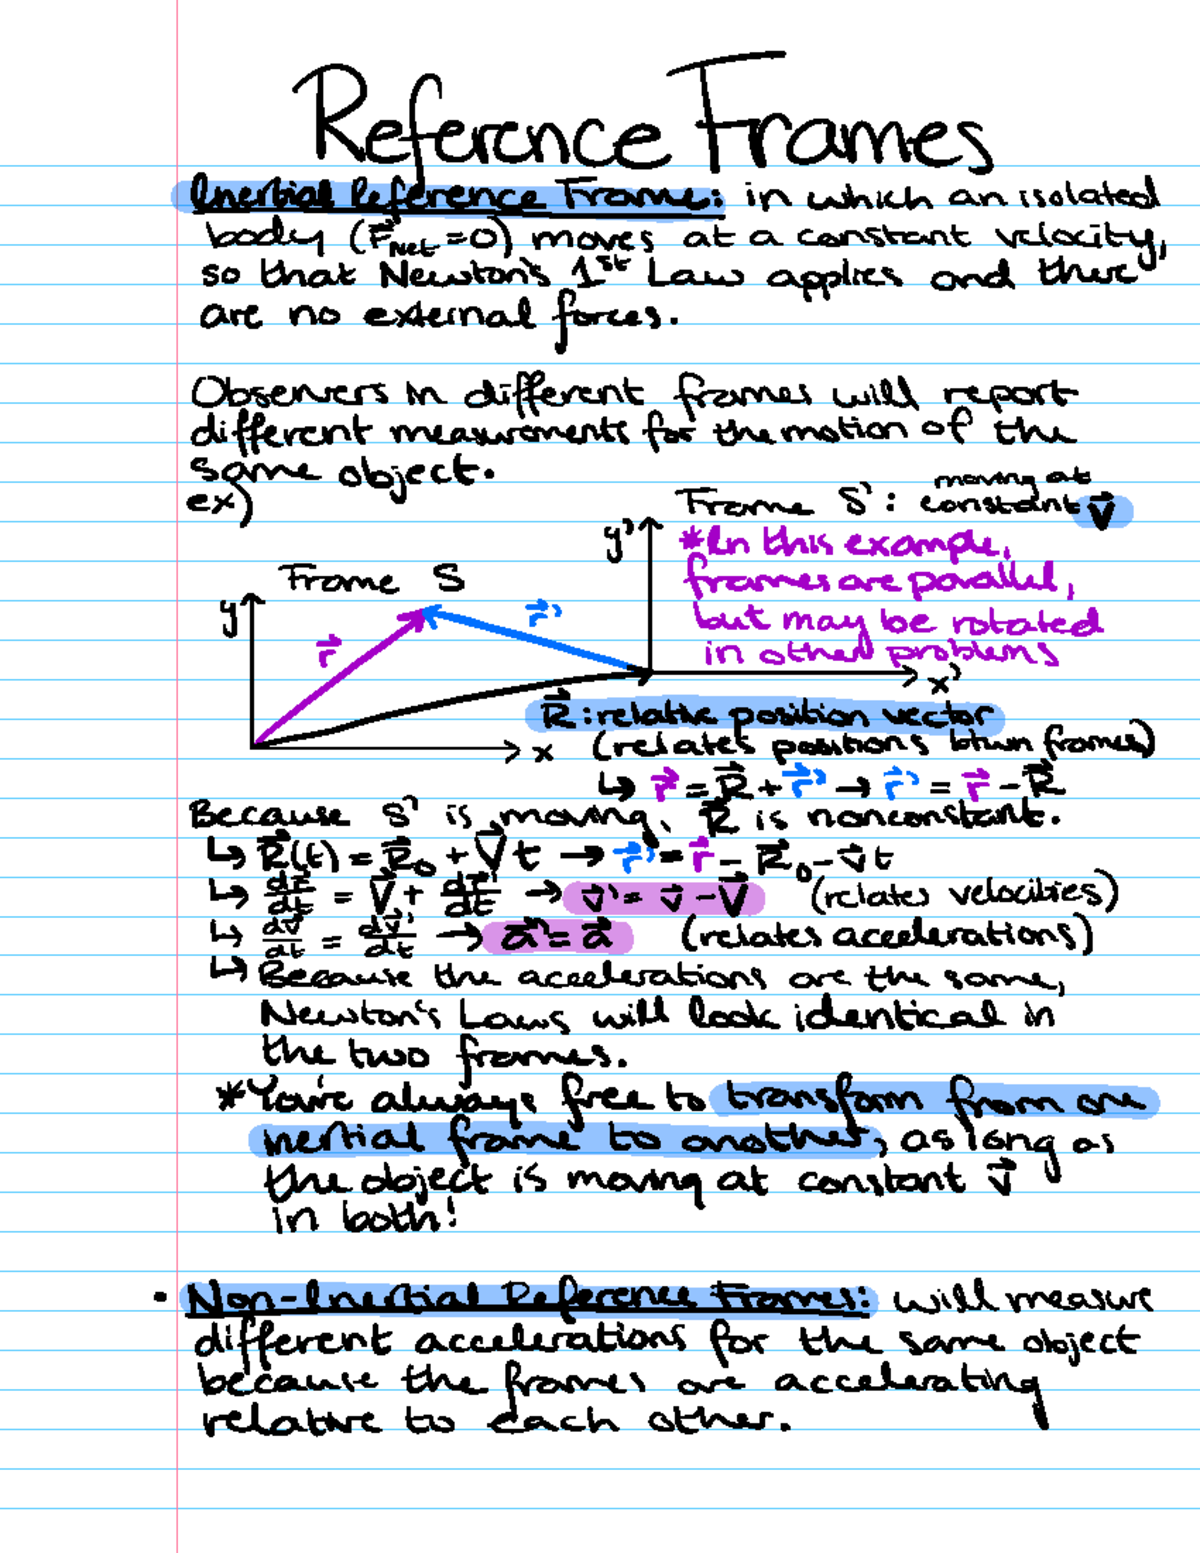 Reference Frames
Inertial Reference Frame: in which an isolated
body (F⃗Net=0) moves at a constant velocity,
so that Newton's 1st Law applies and there
are no external forces.
Observers in different frames will report
different measurements for the motion of the
same object.
ex)
Frame S': moving at constant v⃗
*In this example,
frames are parallel,
but may be rotated
in other problems
y'
x'
Frame S
y
x
r⃗
r⃗'
R⃗: relative position vector
(relates positions btwn frames)
↳ r⃗ = R⃗ + r⃗' → r⃗' = r⃗ - R⃗
Because S' is moving, R⃗ is nonconstant.
↳ R⃗(t) = R⃗₀ + V⃗t → r⃗' = r⃗ - R⃗₀ - v⃗t
↳ dr⃗/dt = V⃗ + dr⃗'/dt → v⃗' = v⃗ - V⃗ (relates velocities)
↳ dv⃗/dt = dv⃗'/dt → a⃗' = a⃗ (relates accelerations)
↳ Because the accelerations are the same,
Newton's Laws will look identical in
the two frames.
*You're always free to transform from one
inertial frame to another, as long as
the object is moving at constant v⃗
in both!
• Non-Inertial Reference Frames: will measure
different accelerations for the same object
because the frames are accelerating
relative to each other.